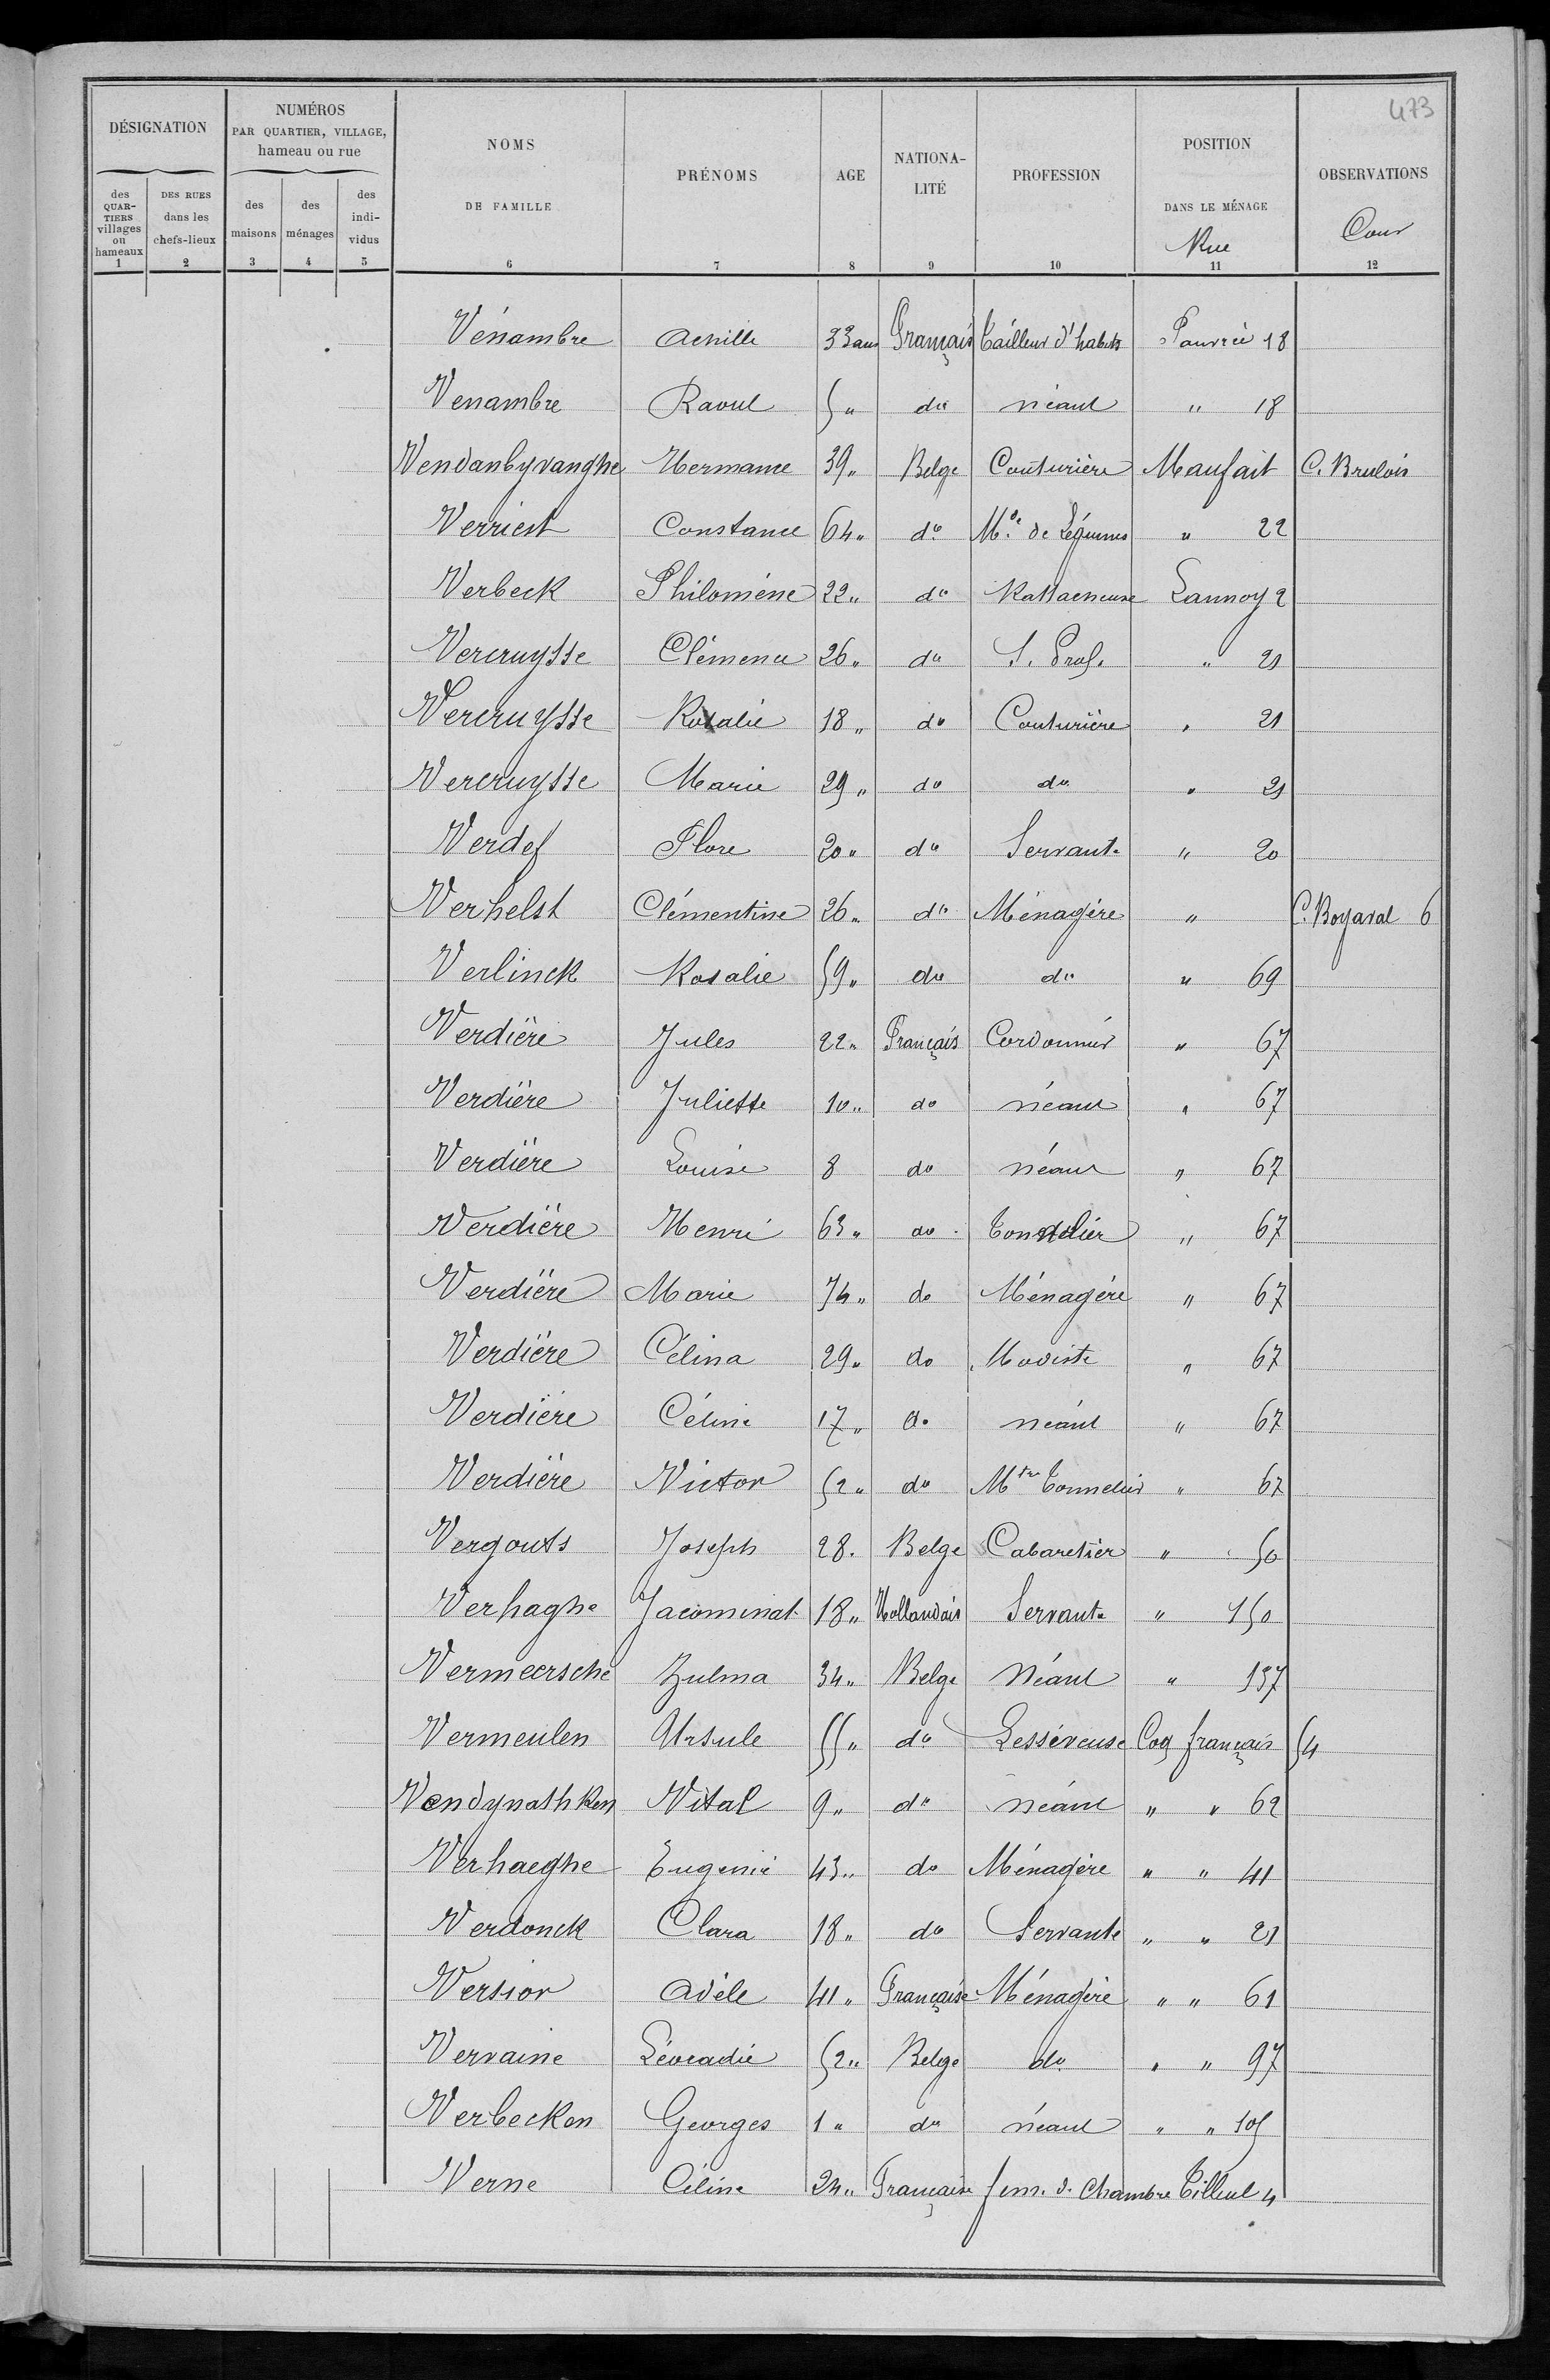 473
DÉSIGNATION
NUMÉROS
PAR QUARTIER, VILLAGE,
hameau ou rue
NOMS
DE FAMILLE
PRÉNOMS
AGE
NATIONA-
LITÉ
PROFESSION
POSITION
DANS LE MÉNAGE
Rue
OBSERVATIONS
Cour
des
QUAR-
TIERS
villages
ou
hameaux
DES RUES
dans les
chefs-lieux
des
maisons
des
ménages
des
indi-
vidus
1 2 3 4 5 6 7 8 9 10 11 12
Vénambre Achille 33 ans Français Tailleur d'habits Pauvrée 18
Venambre Raoul 5 " do néant " 18
Vendanbyvanghe Hermance 39 " Belge Couturière Maufait C. Brulois
Verriest Constance 64 " do Mde de Légumes " 22
Verbeck Philomène 22 " do Lannoy 2
Vercruysse Clémence 26 " do S. Prof. " 21
Vercruysse Rosalie 18 " do Couturière " 21
Vercruysse Marie 29 " do do " 21
Verdef Flore 20 " do Servante " 20
Verhelst Clémentine 26 " do Ménagère " C. Boyaval 6
Verlinck Rosalie 59 " do do " 69
Verdière Jules 22 " Français Cordonnier " 67
Verdière Juliette 10 " do néant " 67
Verdière Louise 8 do néant " 67
Verdière Henri 63 " do Tonnelier " 67
Verdière Marie 74 " do Ménagère " 67
Verdière Célina 29 " do Modiste " 67
Verdière Céline 17 " do néant " 67
Verdière Victor 52 " do Mtre Tonnelier " 67
Vergouts Joseph 28 " Belge Cabaretier " 50
Verhaghe Jacominat 18 " Hollandais Servante " 150
Vermeersche Zulma 34 " Belge Néant " 137
Vermeulen Ursule 55 " do Lessiveuse Coq français 54
Vendynathken Vital 9 " do néant " " 62
Verhaeghe Eugenie 43 " do Ménagère " " 41
Verdonck Clara 18 " do Servante " " 21
Versior Adèle 41 " Française Ménagère " " 61
Vervaine Léocadie 52 " Belge do " " 97
Verbecken Georges 1 " do néant " " 105
Verne Céline 24 " Française fem. d. Chambre Tilleul 4